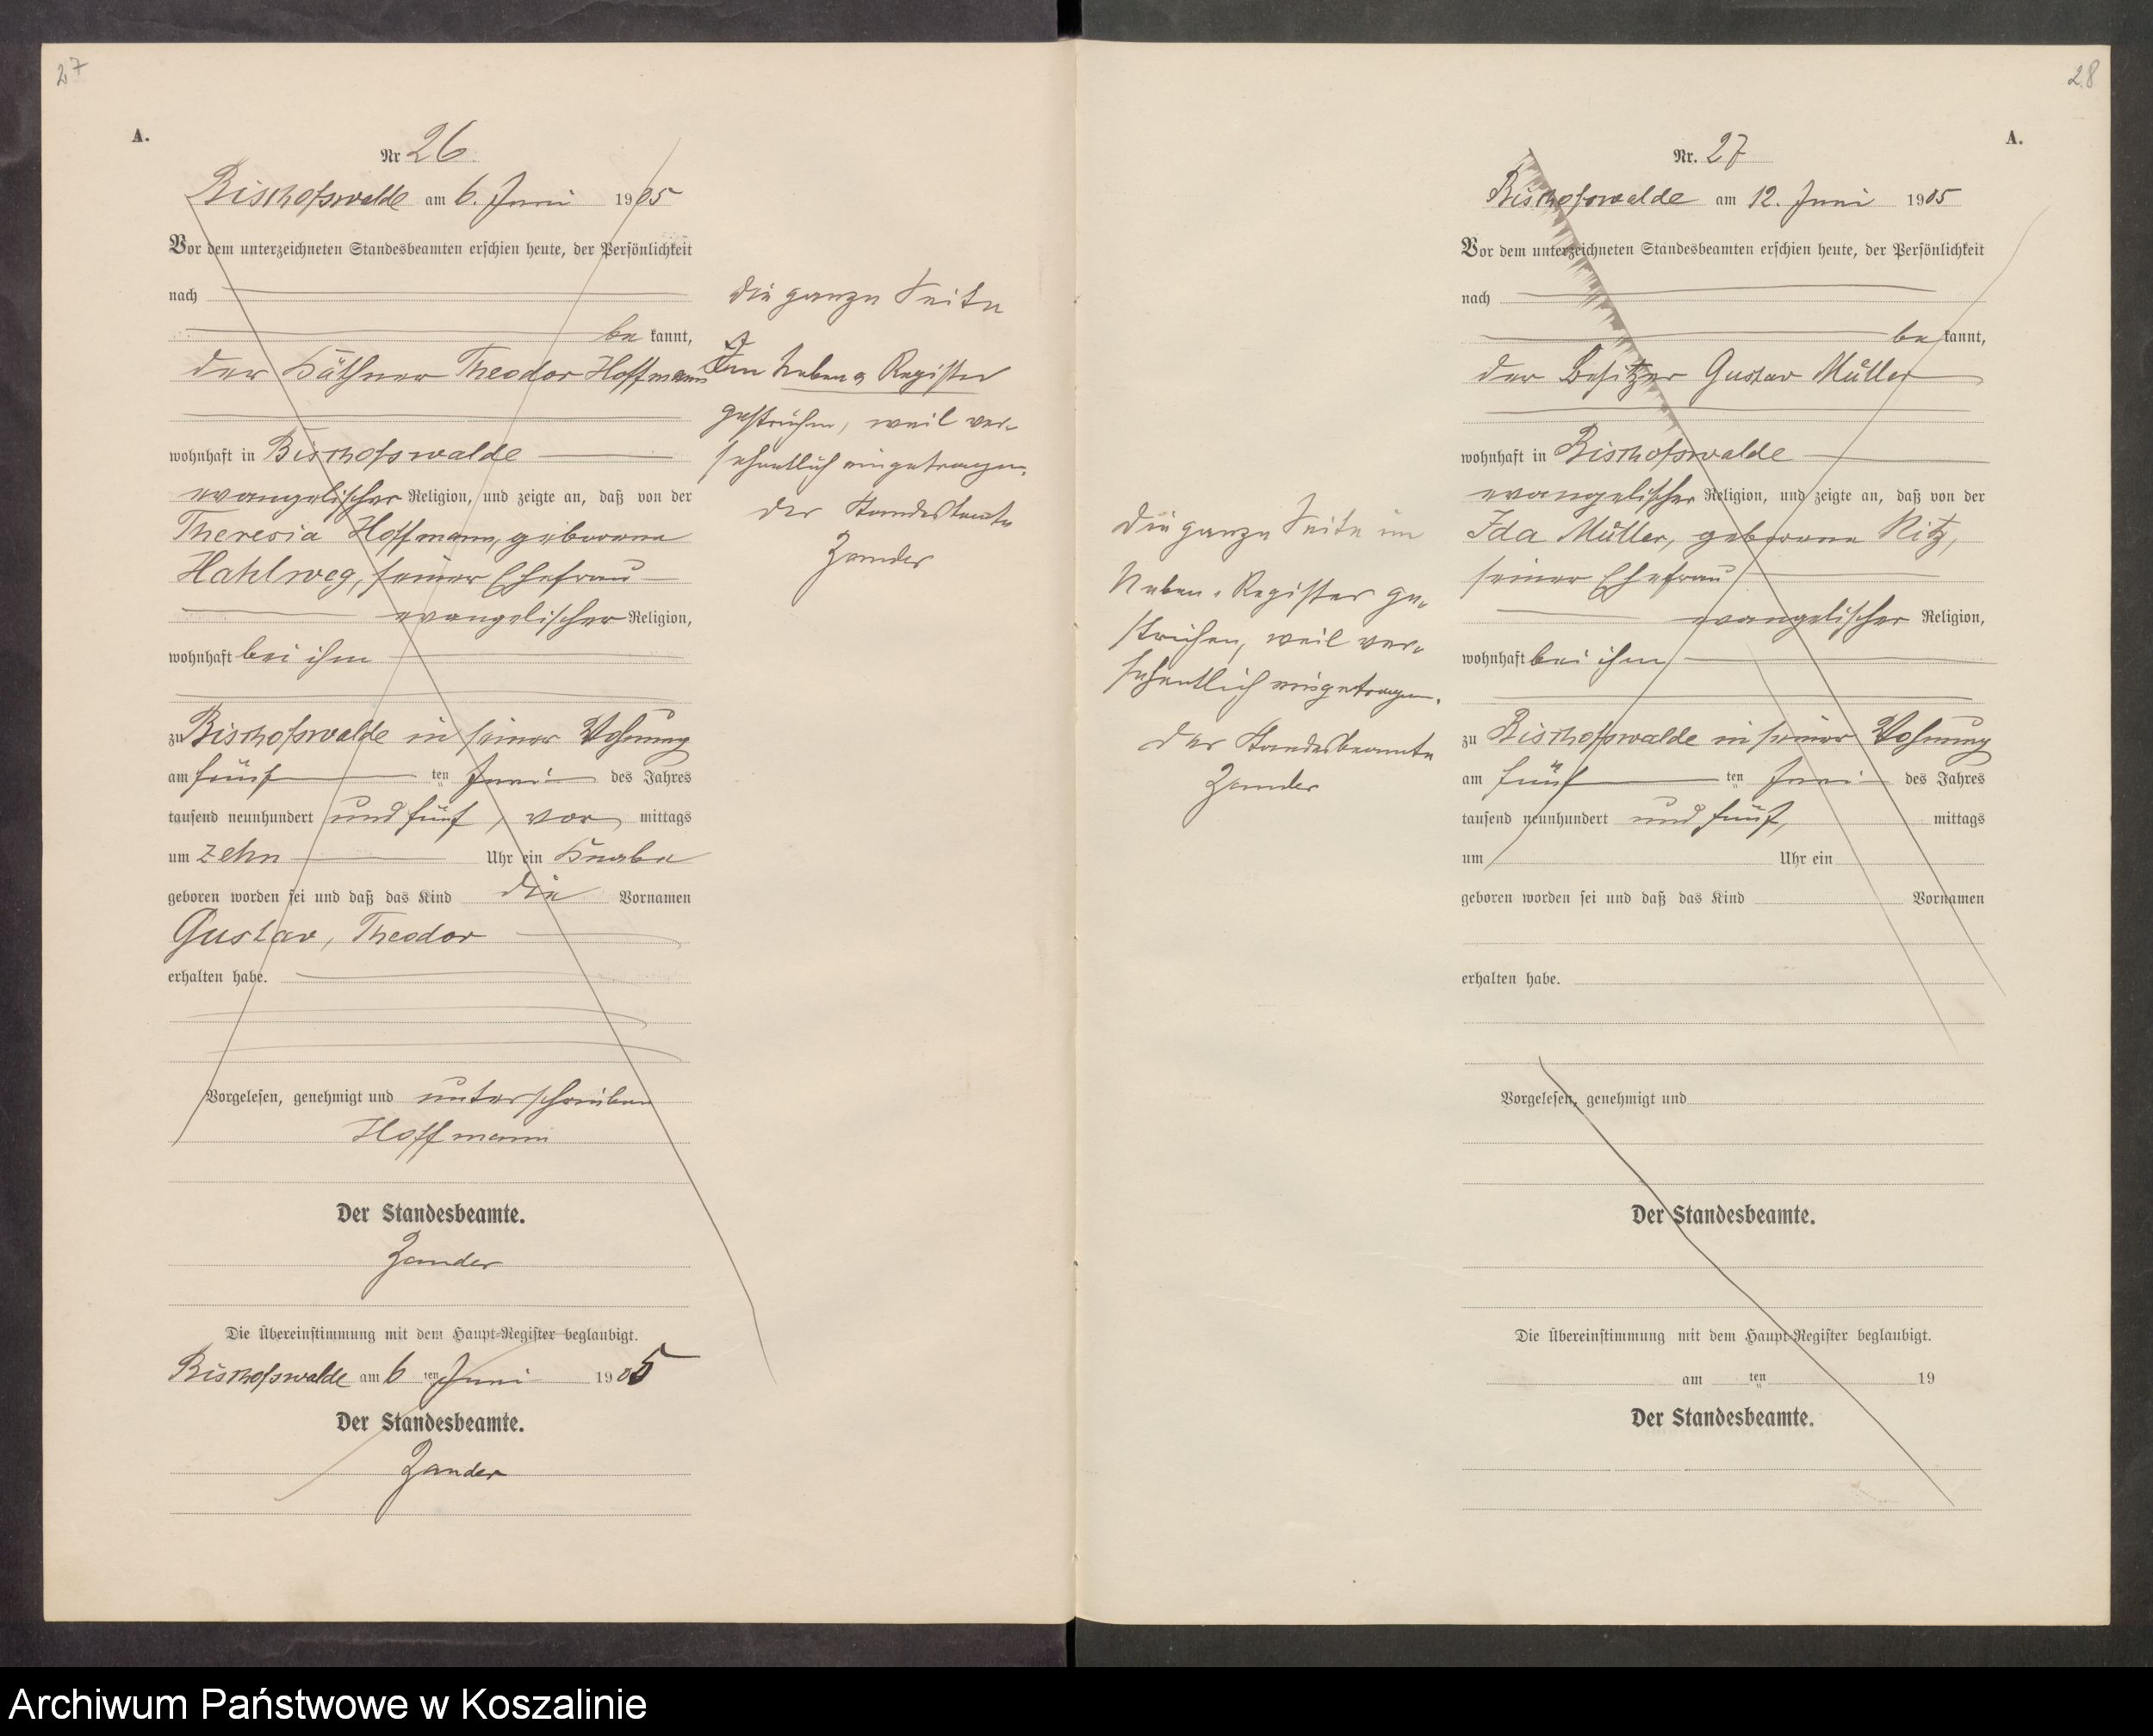 27
A.
Nr 26.
Bischofswalde am 6. Juni 1905
Vor dem unterzeichneten Standesbeamten erschien heute, der Persönlichkeit
nach
be kannt,
der Käthner Theodor Hoffmann
wohnhaft in Bischofswalde
evangelischer Religion, und zeigte an, daß von der
Theresia Hoffmann, geborene
Hahlweg, seiner Ehefrau
evangelischer Religion,
wohnhaft bei ihm
zu Bischofswalde in seiner Wohnung
am fünf ten Juni des Jahres
tausend neunhundert und fünf, vor mittags
um zehn Uhr ein Knabe
geboren worden sei und daß das Kind die Vornamen
Gustav, Theodor
erhalten habe.
Vorgelesen, genehmigt und unterschrieben
Hoffmann
Der Standesbeamte.
Zander
Die Übereinstimmung mit dem Haupt-Register beglaubigt.
Bischofswalde am 6 ten Juni 1905
Der Standesbeamte.
Zander
Die ganze Seite
Im Neben Register
gestrichen, weil ver-
sehentlich eingetragen.
Der Standesbeamte
Zander
28
A.
Nr. 27
Bischofswalde am 12. Juni 1905
Vor dem unterzeichneten Standesbeamten erschien heute, der Persönlichkeit
nach
be kannt,
der Besitzer Gustav Müller
wohnhaft in Bischofswalde
evangelischer Religion, und zeigte an, daß von der
Ida Müller, geborene Ritz,
seiner Ehefrau
evangelischer Religion,
wohnhaft bei ihm
zu Bischofswalde in seiner Wohnung
am fünf ten Juni des Jahres
tausend neunhundert und fünf, mittags
um Uhr ein
geboren worden sei und daß das Kind Vornamen
erhalten habe.
Vorgelesen, genehmigt und
Der Standesbeamte.
Die Übereinstimmung mit dem Haupt-Register beglaubigt.
am ten 19
Der Standesbeamte.
Die ganze Seite im
Neben-Register ge-
strichen, weil ver-
sehentlich eingetragen.
Der Standesbeamte
Zander
Archiwum Państwowe w Koszalinie